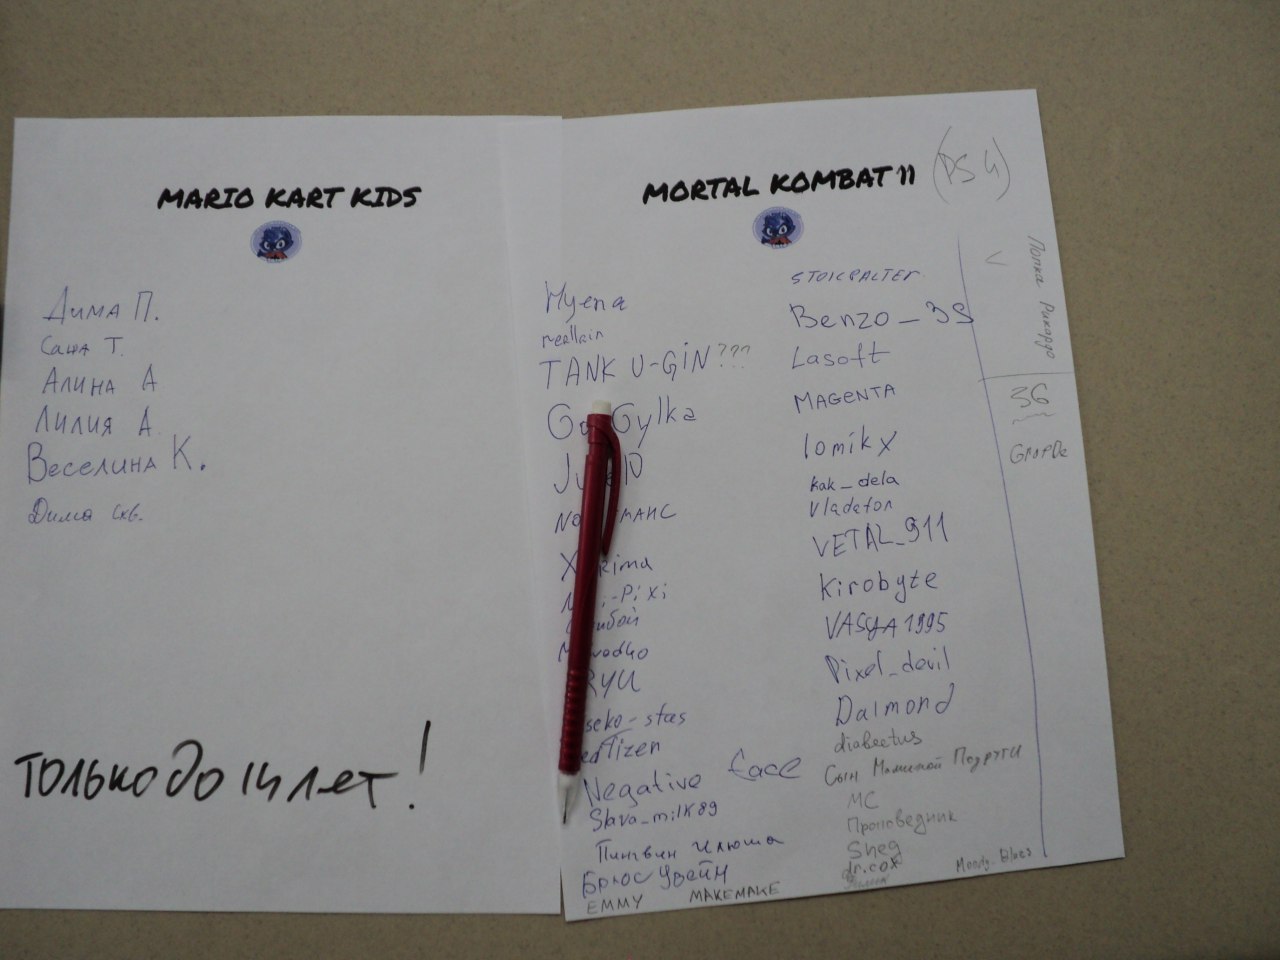 MARIO KART KIDS
Дима П.
Саша Т.
Алина А
Лилия А.
Веселина К.
Дима Скв.
ТОЛЬКО ДО 14 лет!
MORTAL KOMBAT 11 (PS 4)
Hyena
reallain
TANK U-GiN???
Gylka
rima
-Pixi
RYU
seko-stas
Tizen
Negative face
Slava_milk89
Пингвин Илюша
Брюс Уэйн
EMMY MAKEMAKE
STOICPALTER
Benzo_3S
Lasoft
MAGENTA
lomikx
kak_dela
vladaton
VETAL_911
Kirobyte
VASYA1995
Pixel_devil
Dalmond
diabeetus
Сын Маминой Подруги
MC
Проповедник
Sheg
dr.cox
Moody_Blues
Попка Рикардо
36